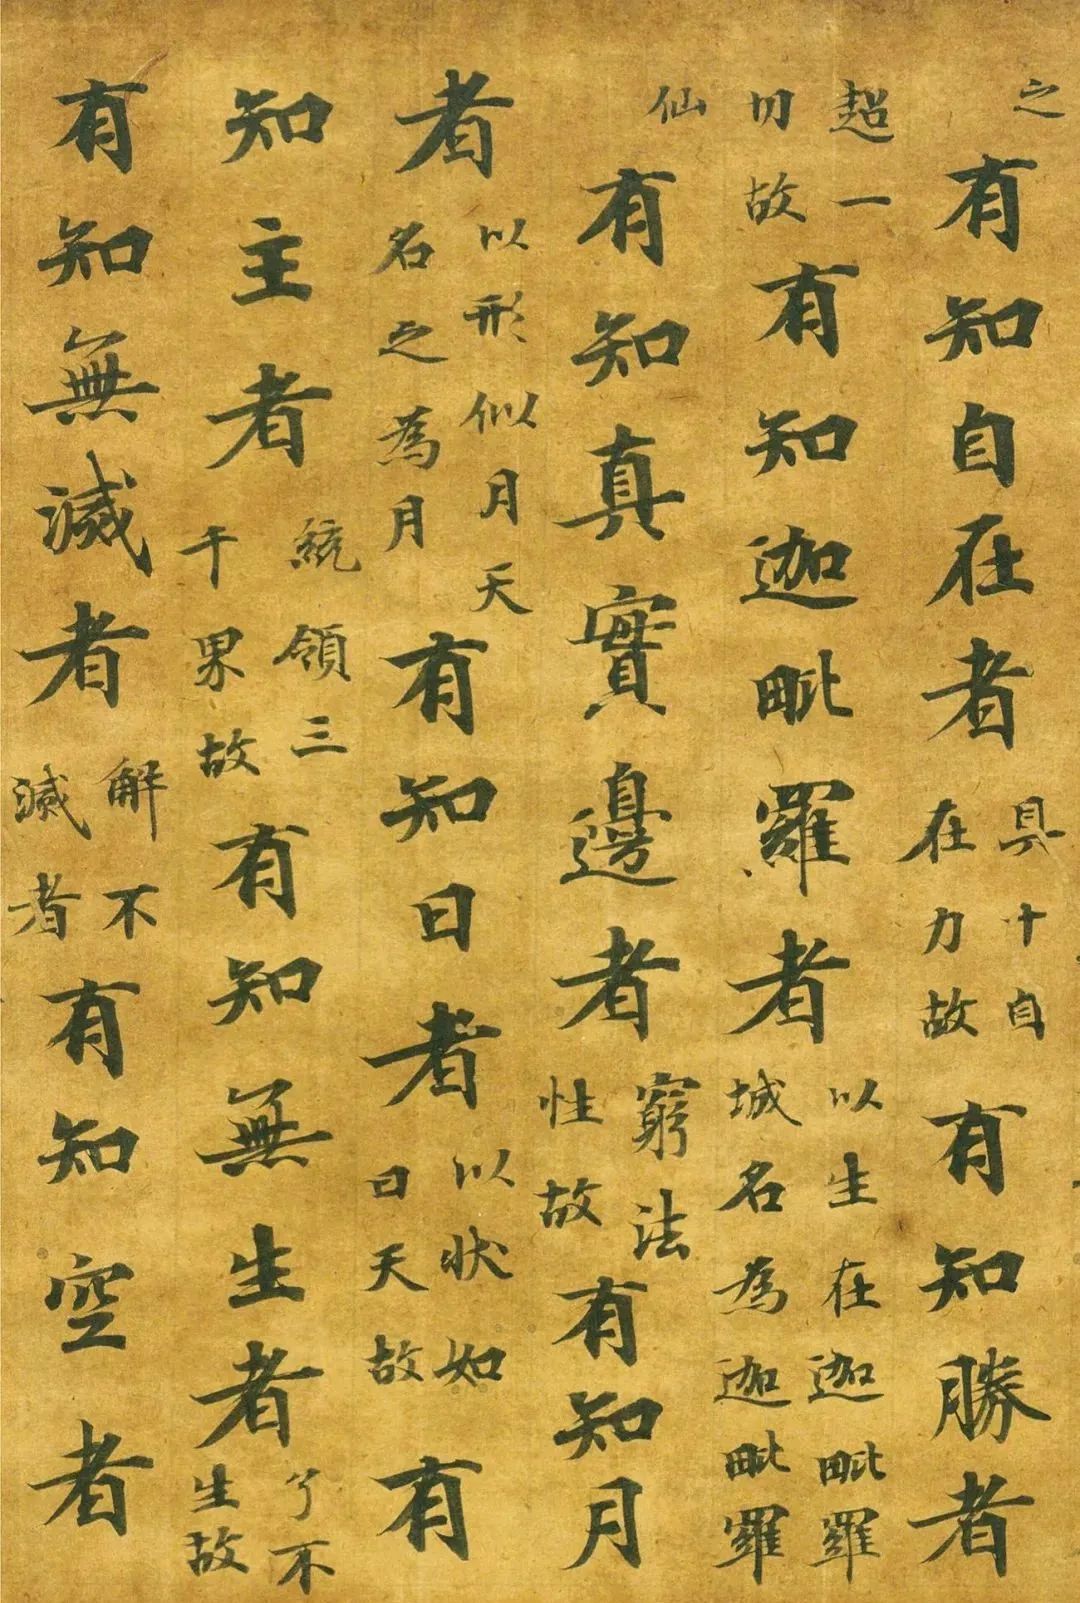 之有知自在者具十自在力故有知勝者
超一切故有知迦毗羅者以生在迦毗羅城名為迦毗羅
仙有知真實邊者窮法性故有知月
者以形似月天名之為月有知日者以状如日天故有
知主者統領三千界故有知無生者了不生故
有知無滅者解不滅者有知空者